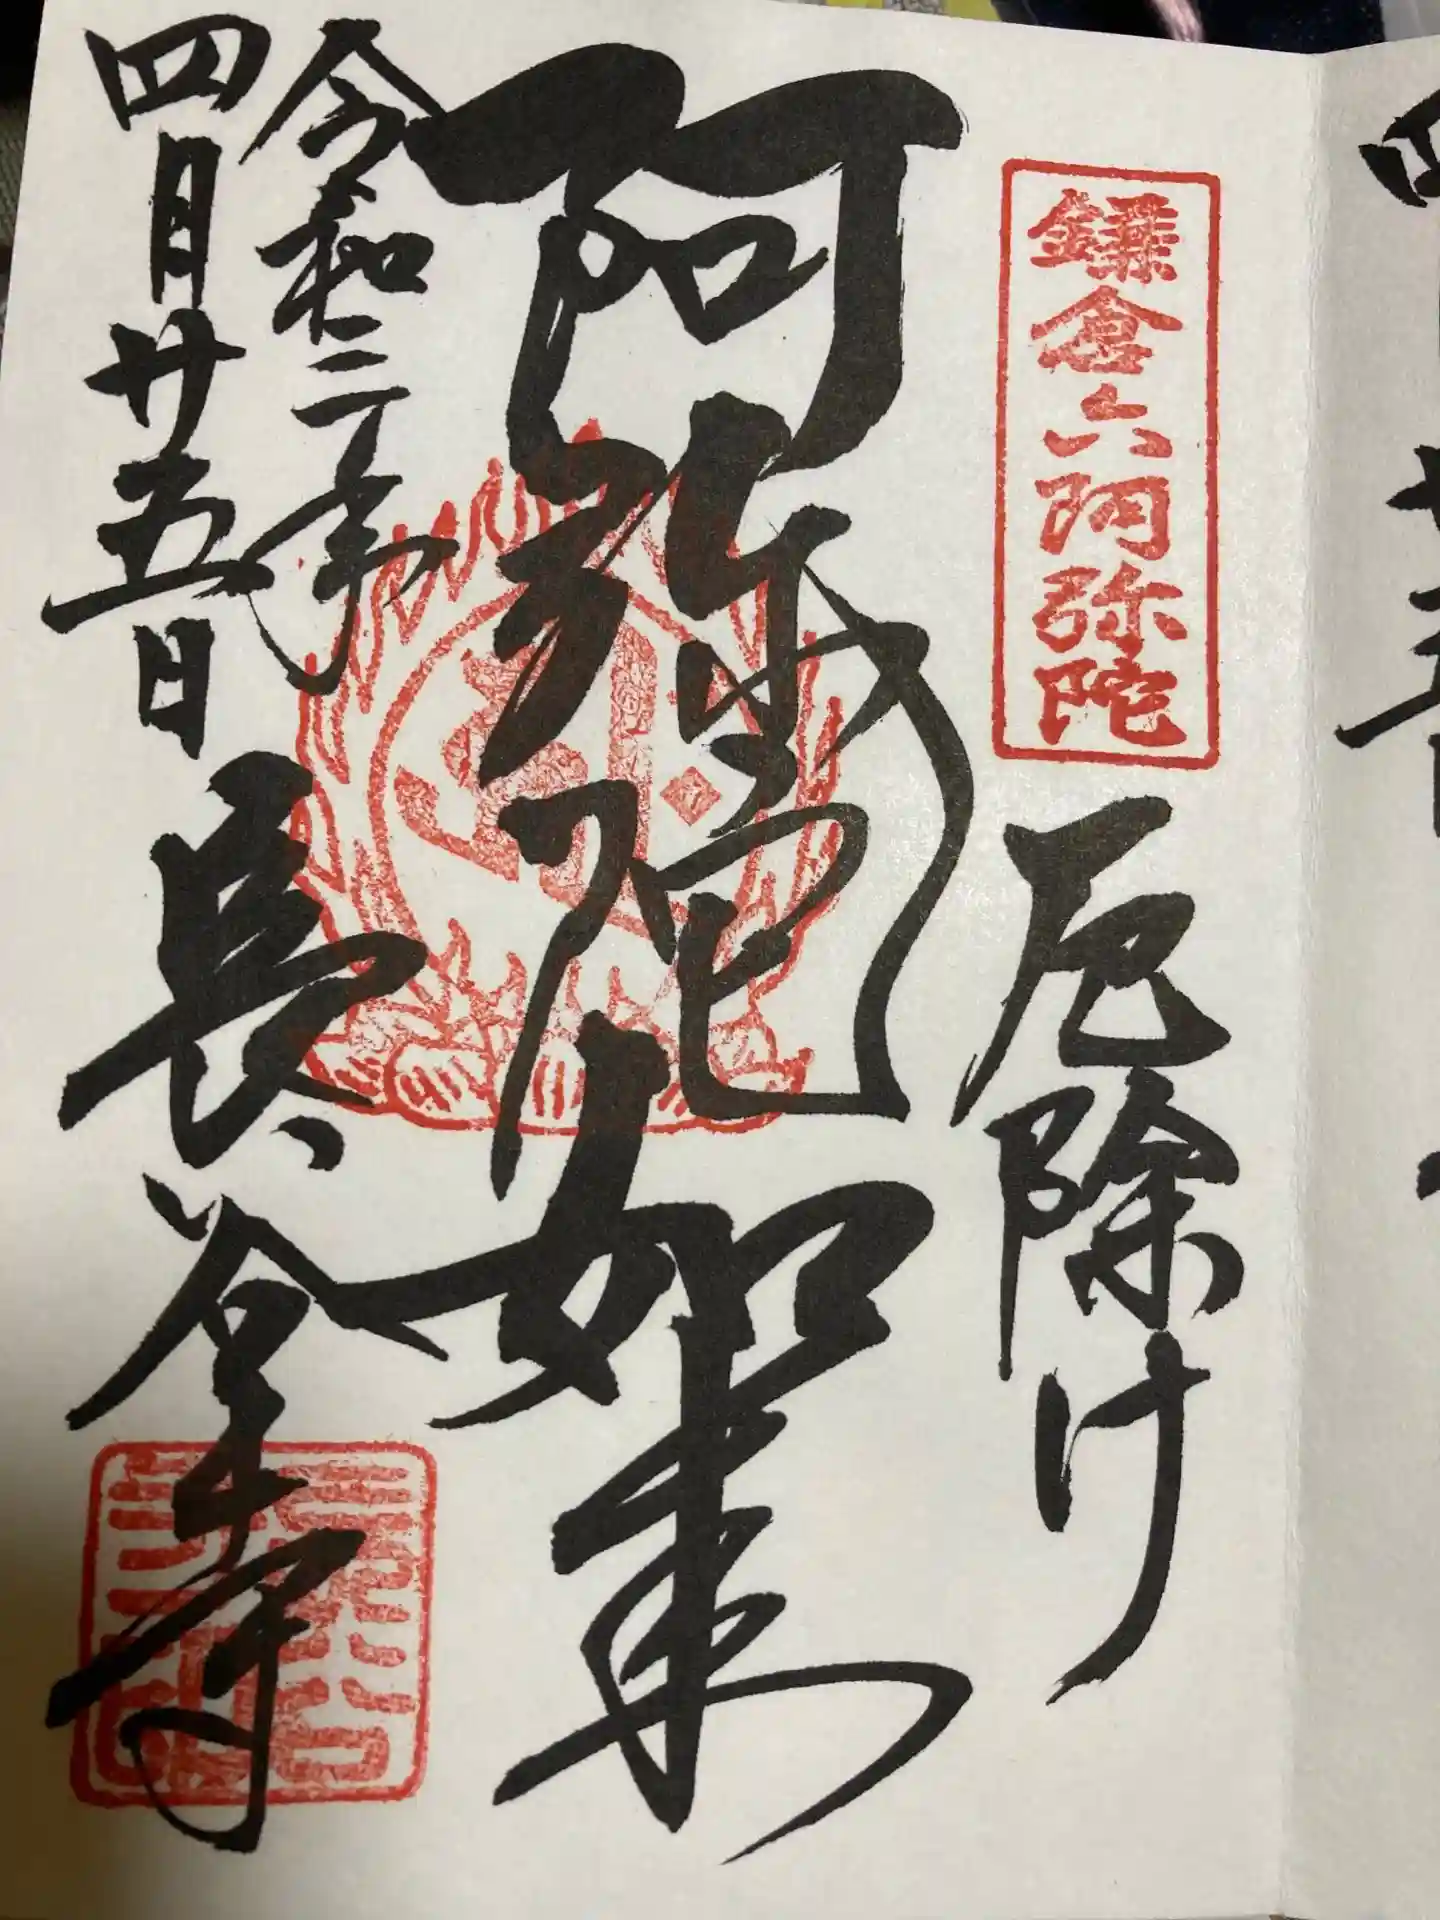 鎌倉六阿弥陀
厄除け
阿弥陀如来
令和二年
四月廿五日
長谷寺